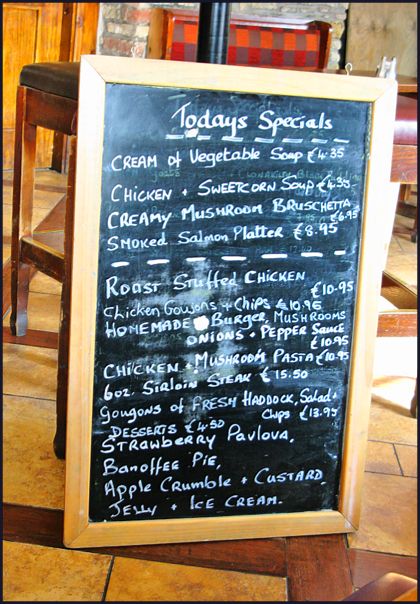 Todays Specials
CREAM of Vegetable Soup €4.35
CHICKEN + SWEETCORN SOUP €4.35
CREAMY MUSHROOM BRUSCHETTA
€6.95
SMOKED Salmon Platter €8.95
ROAST Stuffed CHICKEN
€10.95
Chicken Goujons + Chips €10.95
HOMEMADE Burger, MUSHROOMS
ONIONS + PEPPER SAUCE
€10.95
CHICKEN + MUSHROOM PASTA €10.95
6oz. Sirloin STEAK €15.50
Gougons of FRESH HADDOCK, Salad +
Chips €13.95
DESSERTS €4.50
STRAWBERRY Pavlova,
Banoffee Pie,
Apple Crumble + CUSTARD
JELLY + ICE CREAM.